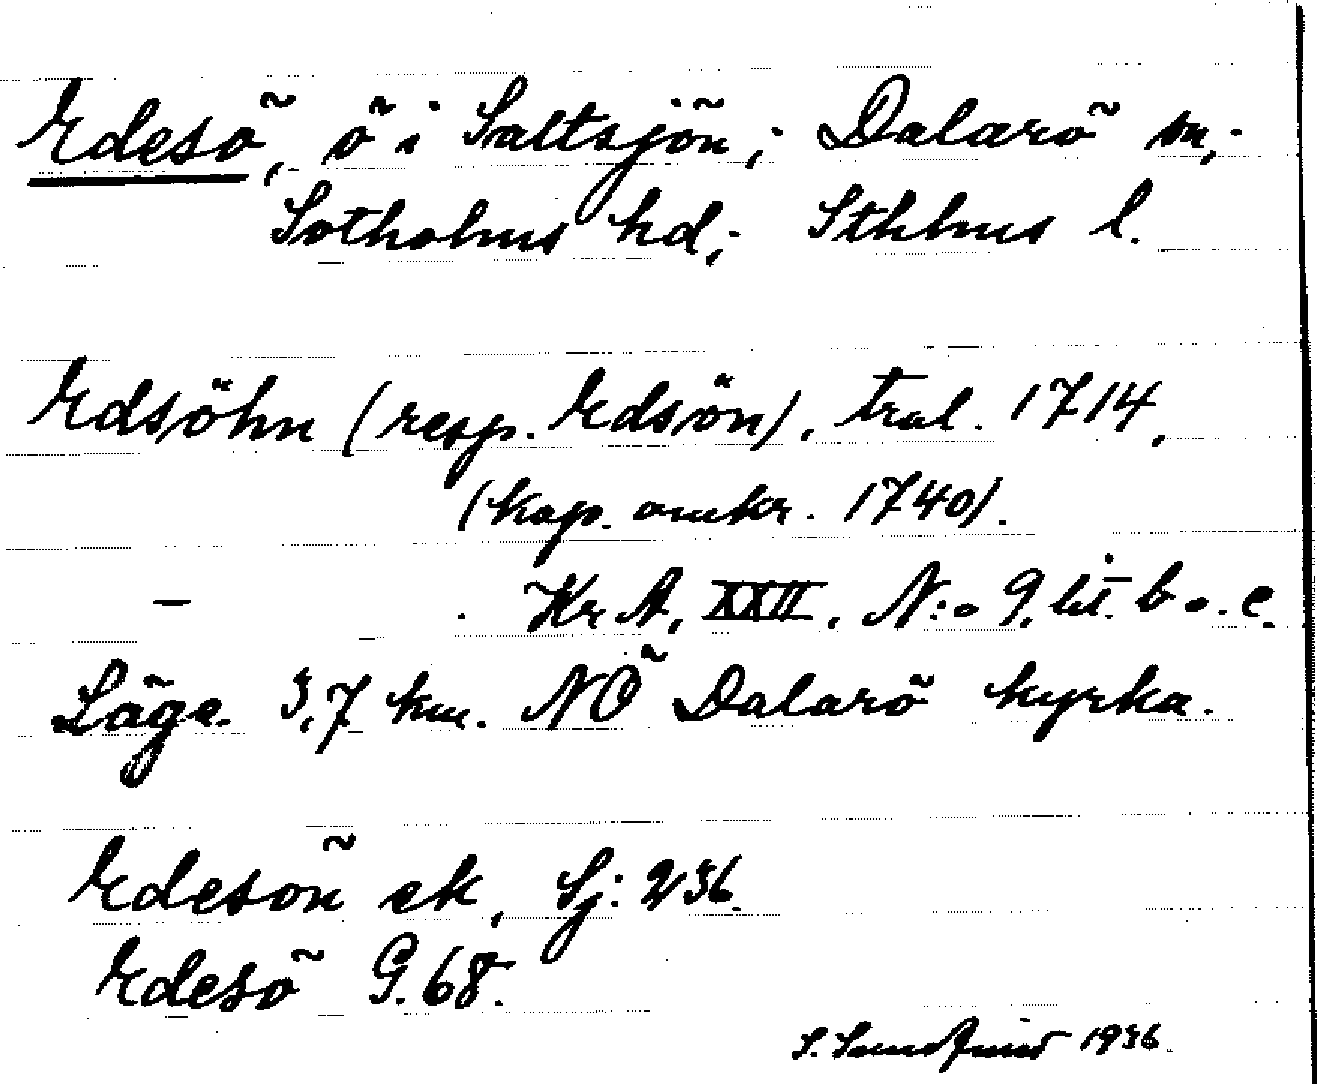 Edesö, ö i Saltsjön; Dalarö sn;
Sotholms hd; Sthlms l.
Edsöhn (resp. Edsön), tral. 1714,
(kop. omkr. 1740).
— Kr A, XXII, N:o 9, lit. b o. c.
Läge 3,7 km. NÖ Dalarö kyrka.
Edesön ek, Sj: 236.
Edesö G. 68.
S. 1936